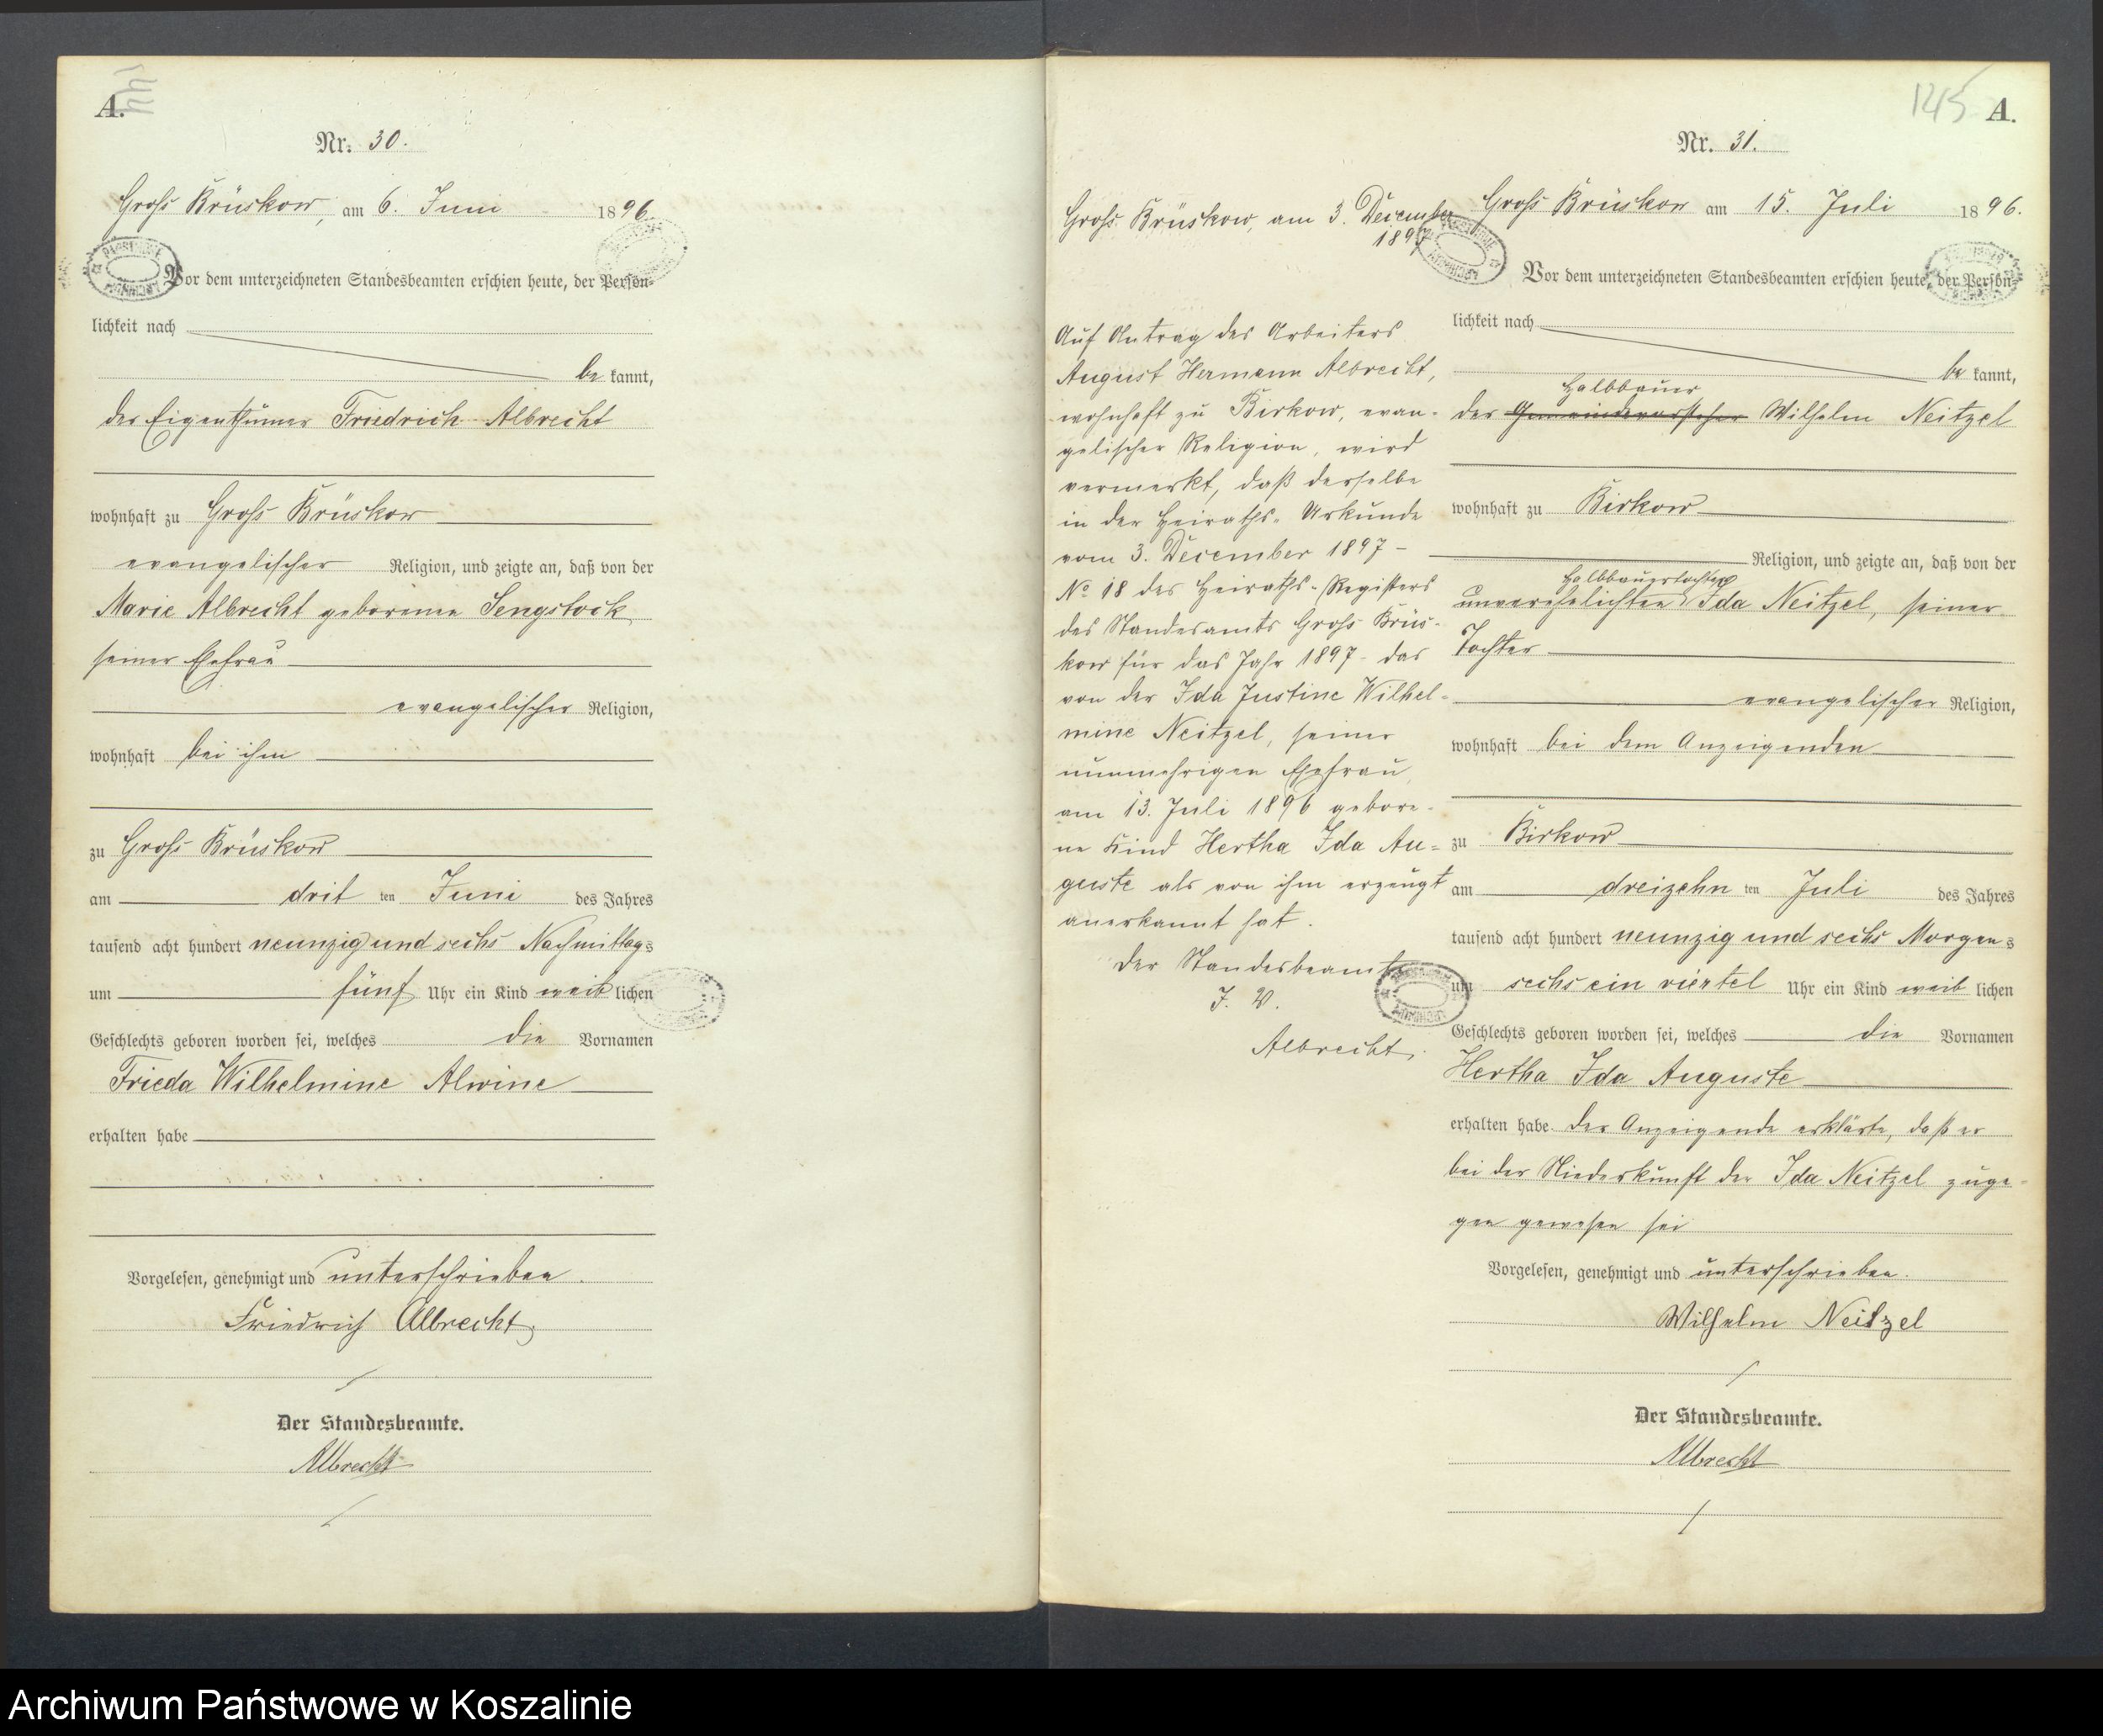 A.
Nr. 30.
Groß Brüskow, am 6. Juni 1896.
Vor dem unterzeichneten Standesbeamten erschien heute, der Persön-
lichkeit nach
be kannt,
der Eigenthümer Friedrich Albrecht
wohnhaft zu Groß Brüskow
evangelischer Religion, und zeigte an, daß von der
Marie Albrecht geborenen Sengstock
seiner Ehefrau
evangelischer Religion,
wohnhaft bei ihm
zu Groß Brüskow
am drit ten Juni des Jahres
tausend acht hundert neunzig und sechs Nachmittags
um fünf Uhr ein Kind weib lichen
Geschlechts geboren worden sei, welches die Vornamen
Frieda Wilhelmine Alwine
erhalten habe
Vorgelesen, genehmigt und unterschrieben.
Friedrich Albrecht,
Der Standesbeamte.
Albrecht
145 A.
Nr. 31.
Groß Brüskow am 15. Juli 1896.
Vor dem unterzeichneten Standesbeamten erschien heute, der Persön-
lichkeit nach
be kannt,
Halbbauer
der Gemeindevorsteher Wilhelm Neitzel
wohnhaft zu Birkow
Religion, und zeigte an, daß von der
Halbbauertochter
unverehelichten Ida Neitzel, seiner
Tochter
evangelischer Religion,
wohnhaft bei dem Anzeigenden
zu Birkow
am dreizehn ten Juli des Jahres
tausend acht hundert neunzig und sechs Morgens
um sechs ein viertel Uhr ein Kind weib lichen
Geschlechts geboren worden sei, welches die Vornamen
Hertha Ida Auguste
erhalten habe. Der Anzeigende erklärte, daß er
bei der Niederkunft der Ida Neitzel zuge-
gen gewesen sei
Vorgelesen, genehmigt und unterschrieben.
Wilhelm Neitzel
Der Standesbeamte.
Albrecht
Groß Brüskow, am 3. December
1897
Auf Antrag des Arbeiters
August Hermann Albrecht,
wohnhaft zu Birkow, evan-
gelischer Religion, wird
vermerkt, daß derselbe
in der Heiraths-Urkunde
vom 3. December 1897 -
No 18 des Heiraths-Registers
des Standesamts Groß Brüs-
kow für das Jahr 1897 - das
von der Ida Justine Wilhel-
mine Neitzel, seiner
nunmehrigen Ehefrau,
am 13. Juli 1896 gebore-
ne Kind Hertha Ida Au-
guste als von ihm erzeugt
anerkannt hat.
Der Standesbeamte
I. V.
Albrecht.
Archiwum Państwowe w Koszalinie